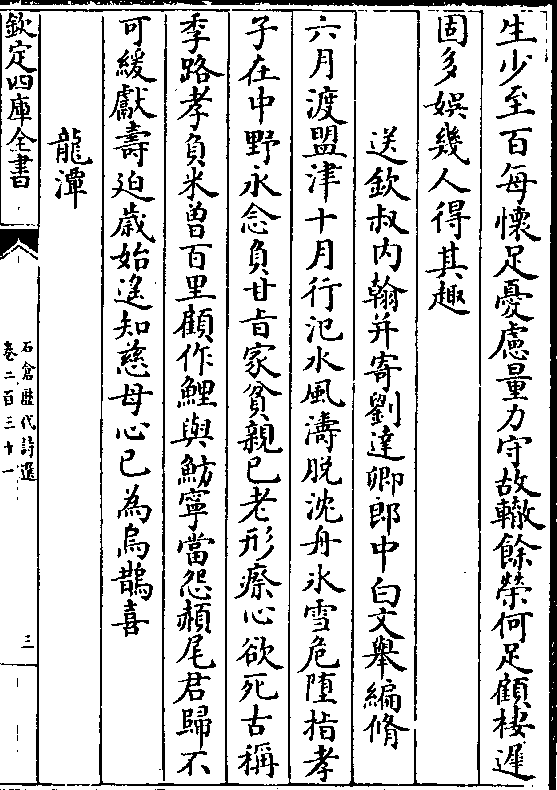 生少至百每懷足憂慮量力守故轍餘榮何足顧棲遲
固多娛幾人得其趣
送欽叔内翰并寄劉達卿郎中白文舉編脩
六月渡盟津十月行汜水風濤脱沈舟氷雪危堕指孝
子在中野永念負甘旨家貧親已老形瘵心欲死古稱
季路孝負米曽百里顧作鯉與魴寧當怨赬尾君歸不
可緩獻壽迫歲始遙知慈母心已為烏鵲喜
龍潭
欽定四庫全書
石倉歴代詩選
卷二百三十一
三